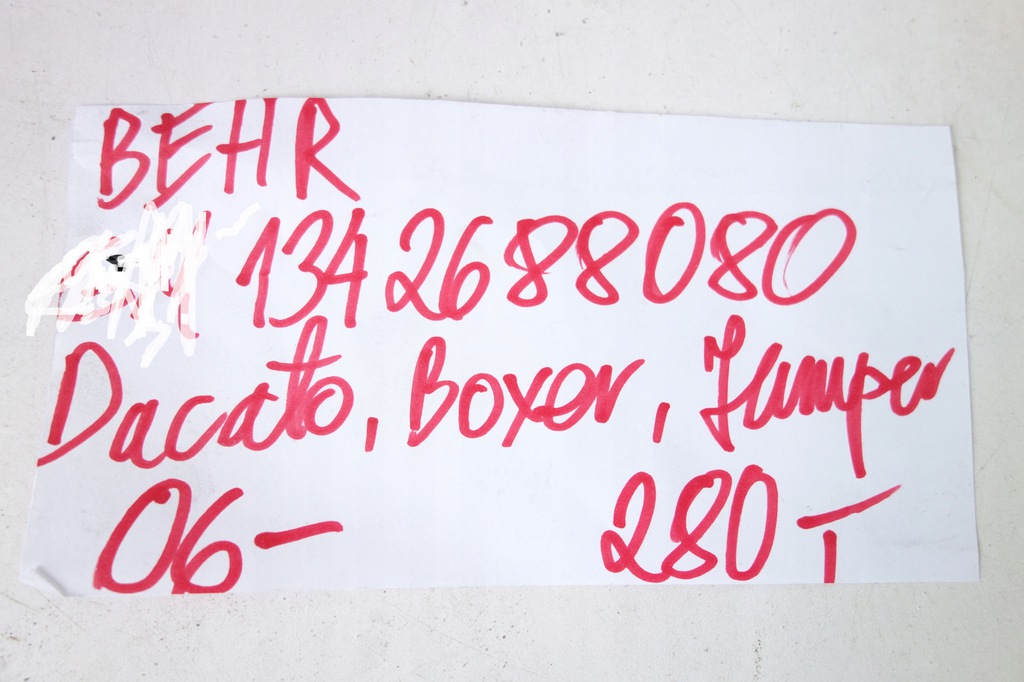 BEHR
1342688080
Dacato, Boxer, Jumper
06- 280 T